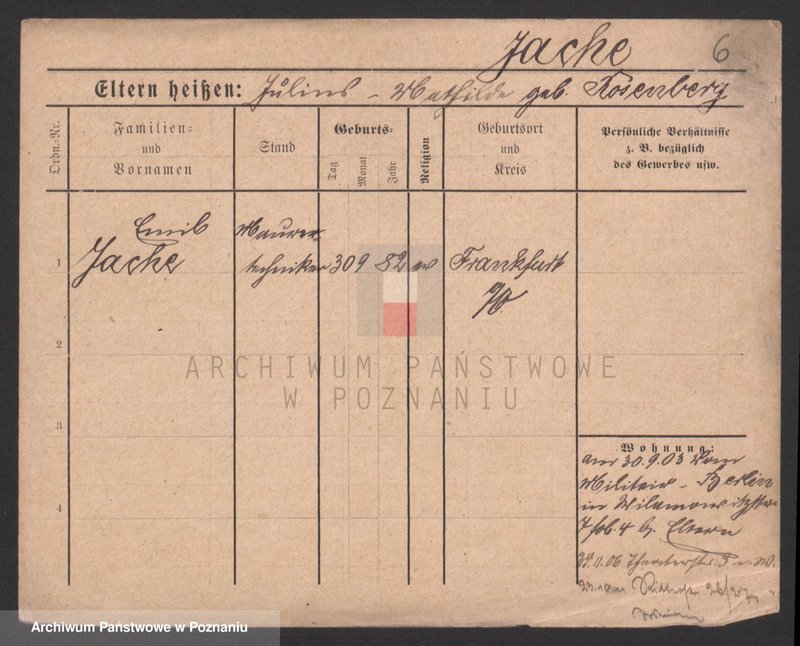 Jache 6
Eltern heißen: Julius – Mathilde geb. Rosenberg
Ordn.-Nr.
Familien- und Vornamen
Stand
Geburts-
Tag Monat Jahr
Religion
Geburtsort und Kreis
Persönliche Verhältnisse z. B. bezüglich des Gewerbes usw.
Emil Maurer-
1 Jache techniker 30 9 82 ev Frankfurt
a/O.
2
ARCHIWUM PAŃSTWOWE
W POZNANIU
3
Wohnung:
am 30.9.03 vom
Militair – Berlin
in Wilamowitzstr.
4
7 bei Eltern
24.11.06 Theaterstr. 3
Archiwum Państwowe w Poznaniu